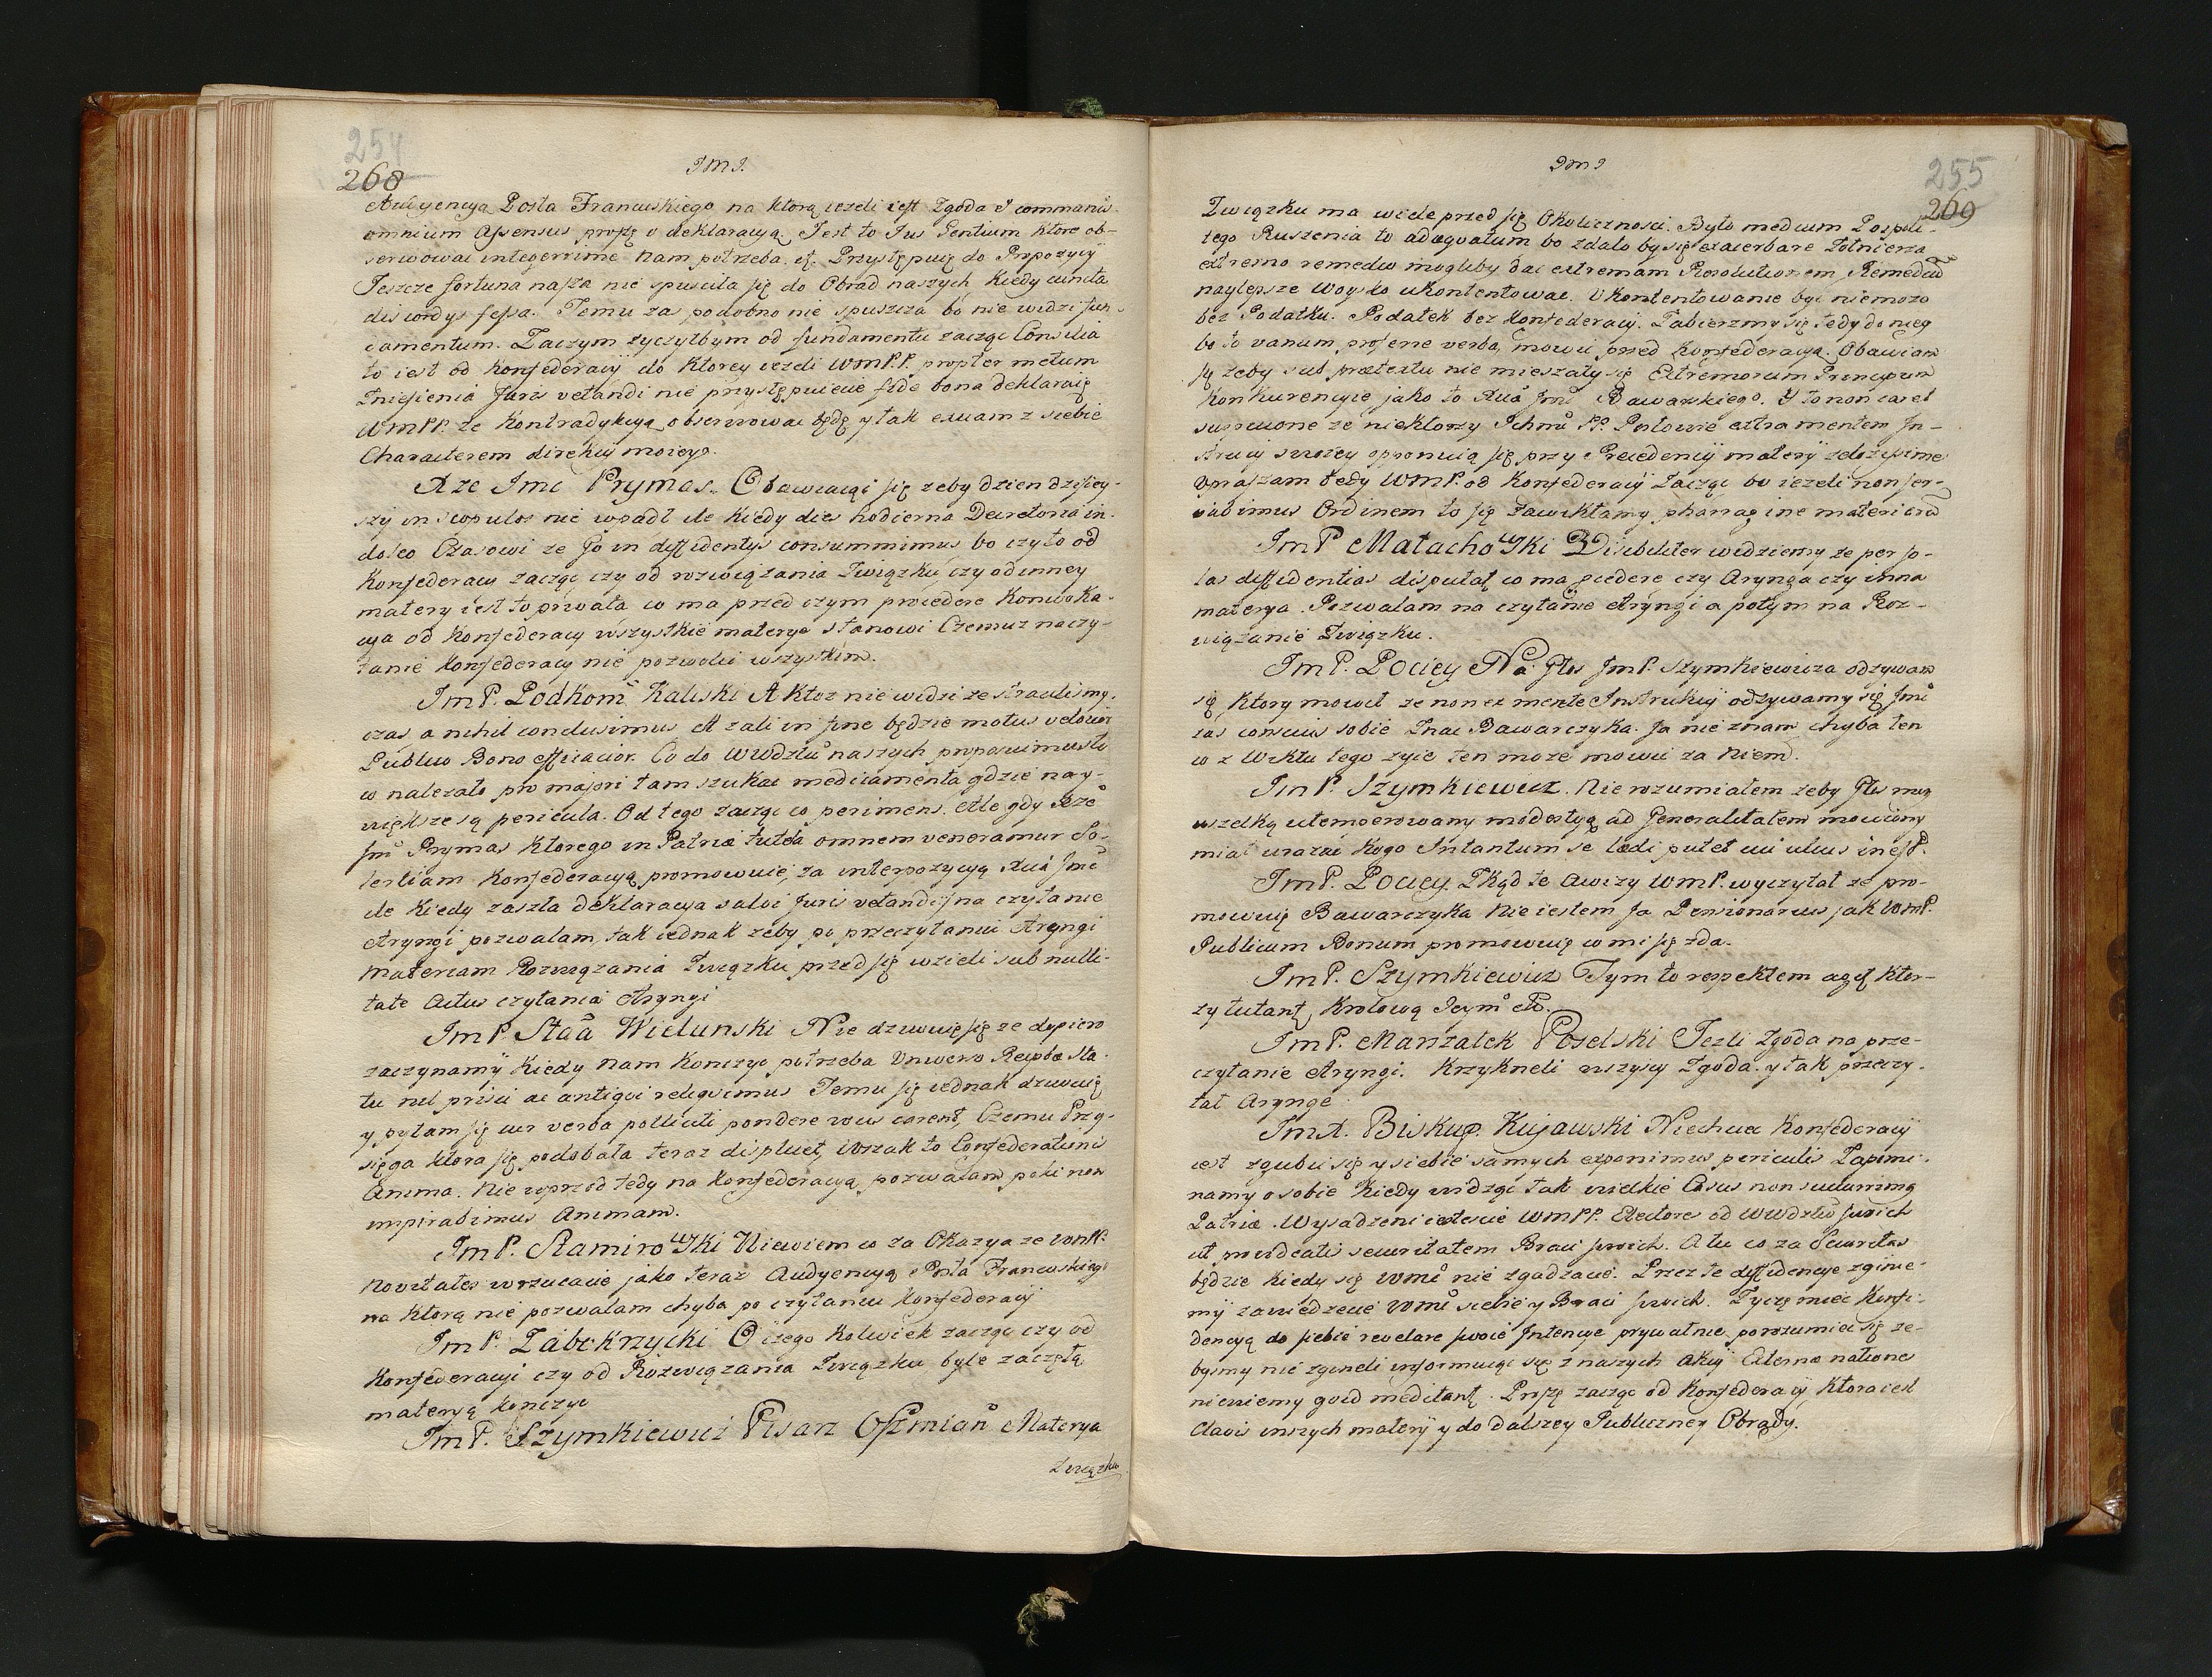 254
268
JmJ.
Audyencya Posła Francuskiego na którą iezeli iest Zgoda & communis
omnium Assensus proszę o deklaracyą. Jest to Jus Gentium ktore ob-
serwować integerrime nam potrzeba. et. Przystępuię do Propozycÿ
Jeszcze fortuna nasza nie spuscila się do Obrad naszych kiedy cuncta
discordÿs fessa. Temu zas podobno nie spuszcza bo nie widzi fun-
damentum. Zaczym zyczyłbym od fundamentu zacząc Consilia
to iest od Konfederacÿ do ktorey iezeli WmPP. propter metum
Zniesienia Juris vetandi nie przystępuiecie fide bona deklaruię
WmPP. ze Kontradykcyą obserwować będę y tak exuam z siebie
Characterem direkcÿ moiey.
Xze Jmc Prymas. Obawiaiąc się zeby dzien dzisiey-
szy in scopulos nie wpadł ile kiedy dies hodierna Decretoria in-
doleo Czasowi ze Go in diffidentÿs consummimus bo czy to od
Konfederacÿ zacząc czy od rozwiązania Związku czy od inney
matery iest to prwata co ma przed czym procedere Konwoka-
cya od Konfederacy wszystkie materye stanowi Czemuz na czy-
tanie Konfederacy nie pozwolić wszystkim.
JmP. Podkom Kaliski A ktoz nie widzi ze stracilismy
czas a nihil conclusimus A zali in fine będzie motus velocior
Publico Bono efficacior. Co do Wwdztw naszych proposuimus to
co nalezało pro majori tam szukac medicamenta gdzie nay-
większe są pericula. Od tego zacząc co perimens. Ale gdy Xze
Jmc Prymas ktorego in Patriæ tutela omnem veneramur So-
lertiam Konfederacyą promowuie, za interpozycyą Xcia Jmc
ile kiedy zaszła deklaracya salvi Juris vetandi, na czytanie
Aryngi pozwalam, tak iednak zeby po przeczytaniu Aryngi
materiam Rozwiązania Związku przed się wzieli sub nulli-
tate Actus czytania Aryngi
JmP. Staa Wielunski Nie dziwuię się ze dopiero
zaczynamÿ kiedy nam Konczyc potrzeba Vniverso Reipbæ Sta-
tu nil prisci ac antiqui reliquimus Temu się iednak dziwuię
y pytam się cur verba polliciti pondere voces carent, Czemu Przy-
sięga ktora się podobała teraz displicet, Wszak to Confederationis
Anima. Nie wprzod tedy na Konfederacyą pozwalam poki non
inspirabimus Animam.
JmP. Stamirowski Niewiem co za Okazya ze WmPP.
Novitates wrzucacie jako teraz Audyencyą Posła Francuskiego
na ktorą nie pozwalam chyba po czytaniu Konfederacÿ
JmP. Zabokrzycki Od czego kolwiek zacząc czy od
Konfederacyi czy od Rozwiązania Związku byle zaczętą
materyą konczyc
JmP. Szymkiewicz Pisarz Oszmian Materya
Związku
255
269
JmJ
Związku ma wiele przed się Okolicznosci. Było medium Pospoli-
tego Ruszenia to adæqvatum bo zdało by się exacerbare Zołnierza
extremo remedio mogłeby dac extremam Resolutionem, Remediu
naylepsze Woysko ukontentowac. Ukontentowanie byc niemoze
bez Podatku. Podatek bez Konfederacÿ. Zabierzmy się tedy do niey
bo to vanum proferre verba, mowic przed Konfederacyą. Obawiam
się zeby sub prætextu nie mieszały się Extremorum Principum
Konkurencye jako to Xcia Jmc Bawarskiego. Y to non caret
suspicione ze niektorzy Ichmc PP. Posłowie extra mentem In-
strucÿ swoiey opponuią się przy Precedencÿ materÿ
Vpraszam tedy WmP. od Konfederacÿ zacząc bo iezeli non ser-
vabimus Ordinem to się zawikłamy pharragine materiarū
JmP Małachowski Disibiliter widziemy ze per so-
las diffidentias disputat, co ma præcedere czy Arynga czy inna
materya. Pozwalam na czytanie Aryngi a potym na Roz-
wiązanie Związku.
JmP. Pociey Na Głos JmP. Szymkiewicza odzywam
się, Ktory mowił ze non ex mente Instrukcÿ odzywamy się Jmc
zas conscius sobie Znac Bawarczyka. Ja nie znam chyba ten
co z Wrktu tego zyie ten moze mowic za Niem.
JmP. Szymkiewicz. Nie rozumiałem zeby Głos moy
wszelką utemperowany modestyą ad Generalitatem mowiony
miał urazac kogo Intantum se lædi putet cui ulcus inest.
JmP. Pociey. Zkąd te Awizy WmP. wyczytał ze pro-
mowuię Bawarczyka Nie iestem Ja Pensionarius jak WmP.
Publicum Bonum promowuię co mi się zda.
JmP. Szymkiewicz Tym to respektem agęt, kto-
zy tutant, Krolową Jeym etc.
JmP. Marszałek Poselski Jezli Zgoda na prze-
czytanie Aryngi. Krzykneli wszyscy Zgoda. y tak przeczy-
tał Aryngę.
JmX. Biskup Kujawski Niechciec Konfederacÿ
iest zgubic się y siebie samych exponimus periculis Zapomi-
namy o sobie kiedy widząc tak wielkie Casus non succurrimus
Patriæ. Wysadzeni iestescie WmPP. Electores od Wwdztw swoich
ut provideatis securitatem Braci swoich. A tu co za Securitas
będzie kiedy się Wmc nie zgadzacie. Przez te diffidencye zginie-
mÿ zawiedziecie Wmc siebie y Braci swoich. Zyczę miec Konfi-
dencyą do siebie revelare swoie Intencye prywatnie porozumiec się ze-
bysmy nie zgineli informuiąc się z naszych akcÿ Externæ nationes
niewiemy qvid meditant. Proszę zacząc od Konfederacÿ ktora iest
Clavis inszych materÿ y do dalszey Publiczney Obrady.